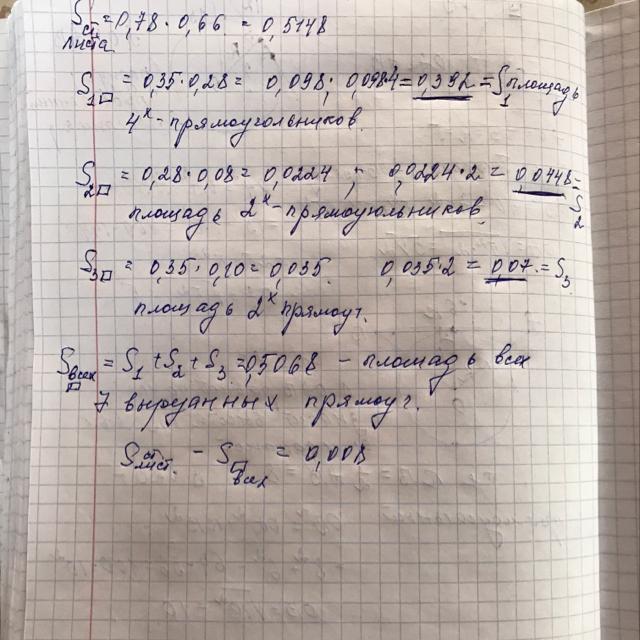 Sст листа = 0,78 · 0,66 = 0,5148
S1□ = 0,35·0,28 = 0,098; 0,098·4 = 0,392 = S1 площадь
4х-прямоугольников.
S2□ = 0,28·0,08 = 0,0224; 0,0224·2 = 0,0448 = S2
площадь 2х-прямоугольников.
S3□ = 0,35·0,10 = 0,035. 0,035·2 = 0,07. = S3
площадь 2х прямоуг.
Sвсех□ = S1 + S2 + S3 = 0,5068 - площадь всех
7 вырезанных прямоуг.
Sст.лист. - S□всех = 0,008